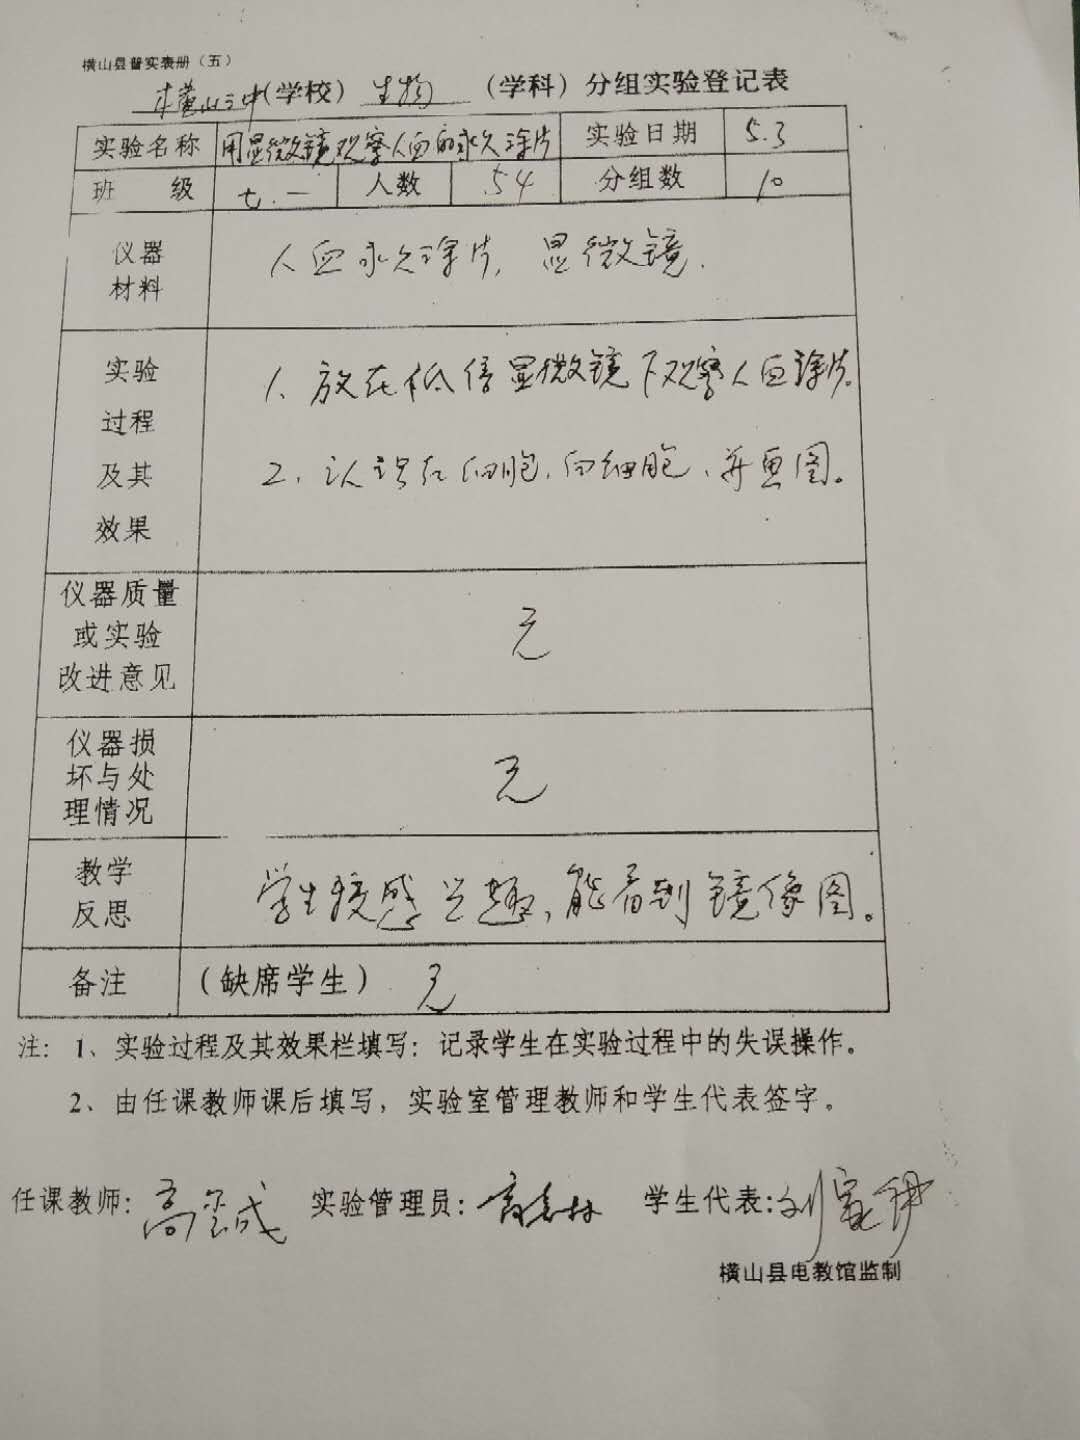 横山县普实表册（五）
横山三中(学校) 生物 (学科) 分组实验登记表
实验名称 用显微镜观察人血的永久涂片 实验日期 5.3
班 级 七.一 人数 54 分组数 10
仪器
材料
人血永久涂片, 显微镜.
实验
过程
及其
效果
1、放在低倍显微镜下观察人血涂片.
2、认识红细胞.白细胞、并画图。
仪器质量
或实验
改进意见
无
仪器损
坏与处
理情况
无
教学
反思
学生很感兴趣,能看到镜像图。
备注 (缺席学生) 无
注: 1、实验过程及其效果栏填写: 记录学生在实验过程中的失误操作。
2、由任课教师课后填写, 实验室管理教师和学生代表签字。
任课教师: 高 成 实验管理员: 学生代表: 刘家
横山县电教馆监制